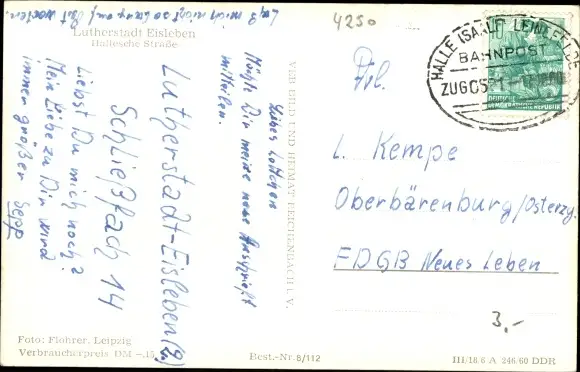 Laß mich nicht so lang auf Post warten.
Lutherstadt Eisleben
Hallesche Straße
Liebes Lottchen
Möchte Dir meine neue Anschrift
mitteilen.
Lutherstadt-Eisleben (2)
Schließfach 14
Liebst Du mich noch?
Meine Liebe zu Dir wird
immer größer Sepp
VEB BILD UND HEIMAT REICHENBACH I. V.
4250
HALLE (SAALE) LEINEFELDE
BAHNPOST
ZUG 0521
DEUTSCHE
DEMOKRATISCHE REPUBLIK
Frl.
L. Kempe
Oberbärenburg/Osterzg.
FDGB Neues Leben
3,-
Foto: Flohrer, Leipzig
Verbraucherpreis DM -.15
Best.-Nr. 8/112
III/18/6 A 246.60 DDR